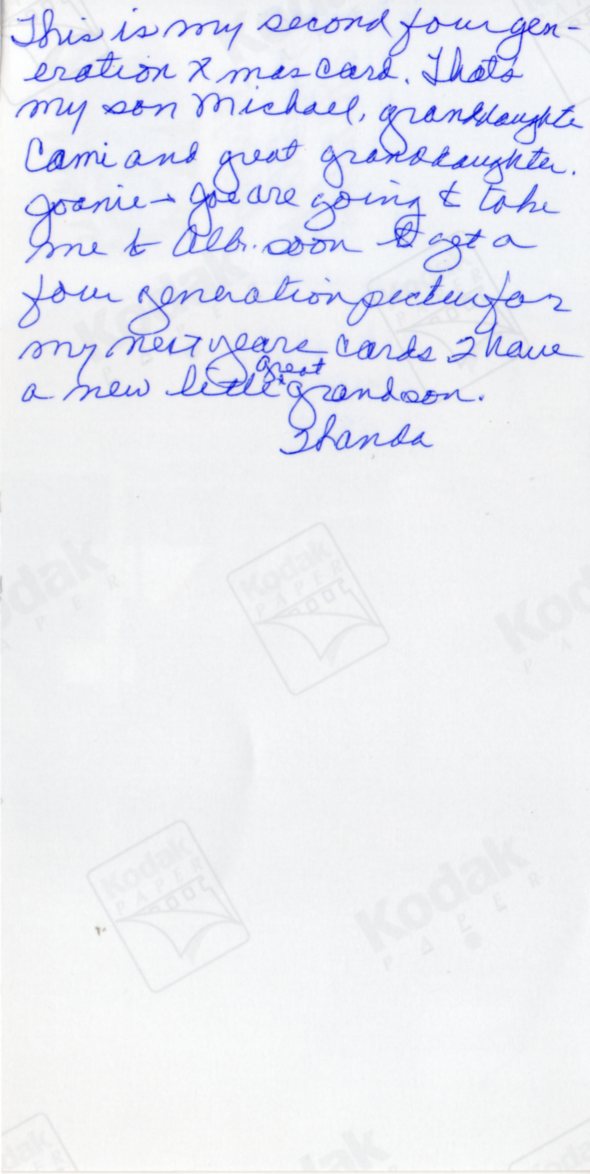 This is my second four gen-
eration Xmas card. Thats
my son Michael, granddaughte
Cami and great granddaughter.
Joanie + Joe are going to take
me to Alb. soon to get a
four generation pictur for
my next years cards I have
a new little great grandson.
Thanda
Kodak
PAPER
Kodak
PAPER
Kodak
PAPER
Kodak
PAPER
Kodak
PAPER